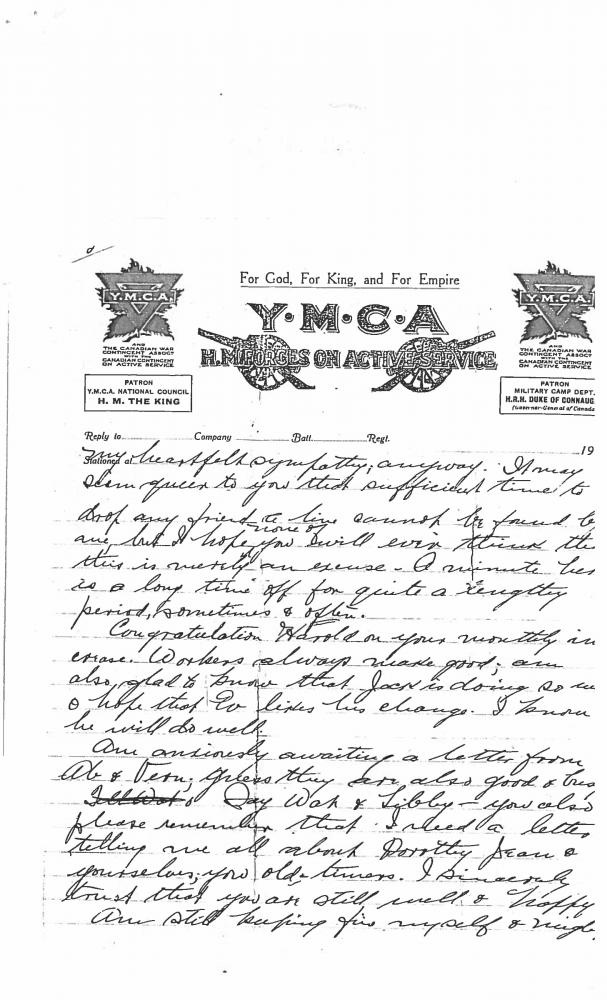 d
For God, For King, and For Empire
Y·M·C·A
H.M. FORCES ON ACTIVE SERVICE
Y.M.C.A.
AND
THE CANADIAN WAR
CONTINGENT ASSOCN
WITH THE
CANADIAN CONTINGENT
ON ACTIVE SERVICE
PATRON
Y.M.C.A. NATIONAL COUNCIL
H. M. THE KING
Y.M.C.A.
AND
THE CANADIAN WAR
CONTINGENT ASSOCN
WITH THE
CANADIAN CONTINGENT
ON ACTIVE SERVICE
PATRON
MILITARY CAMP DEPT.
H.R.H. DUKE OF CONNAUG
(Governor-General of Canada
Reply to Company Batt. Regt.
Stationed at 19
my heartfelt sympathy, anyway. It may
seem queer to you that sufficient time to
drop any friend a line cannot be found by
me, but I hope none of you will even think tha
this is merely an excuse - A minute her
is a long time off for quite a lengthy
period, sometimes & often.
Congratulation Harold on your monthly in
crease. Workers always make good; am
also, glad to know that Jack is doing so w
& hope that Ev likes his change. I know
he will do well.
Am anxiously awaiting a letter from
Ab & Vern; Guess they are also good & bus
Say Wak & Libby - you also
please remember that I need a letter
telling me all about Dorothy Jean &
yourselves, you old-timers. I sincerely
trust that you are still well & happy
Am still keeping fine myself & migh